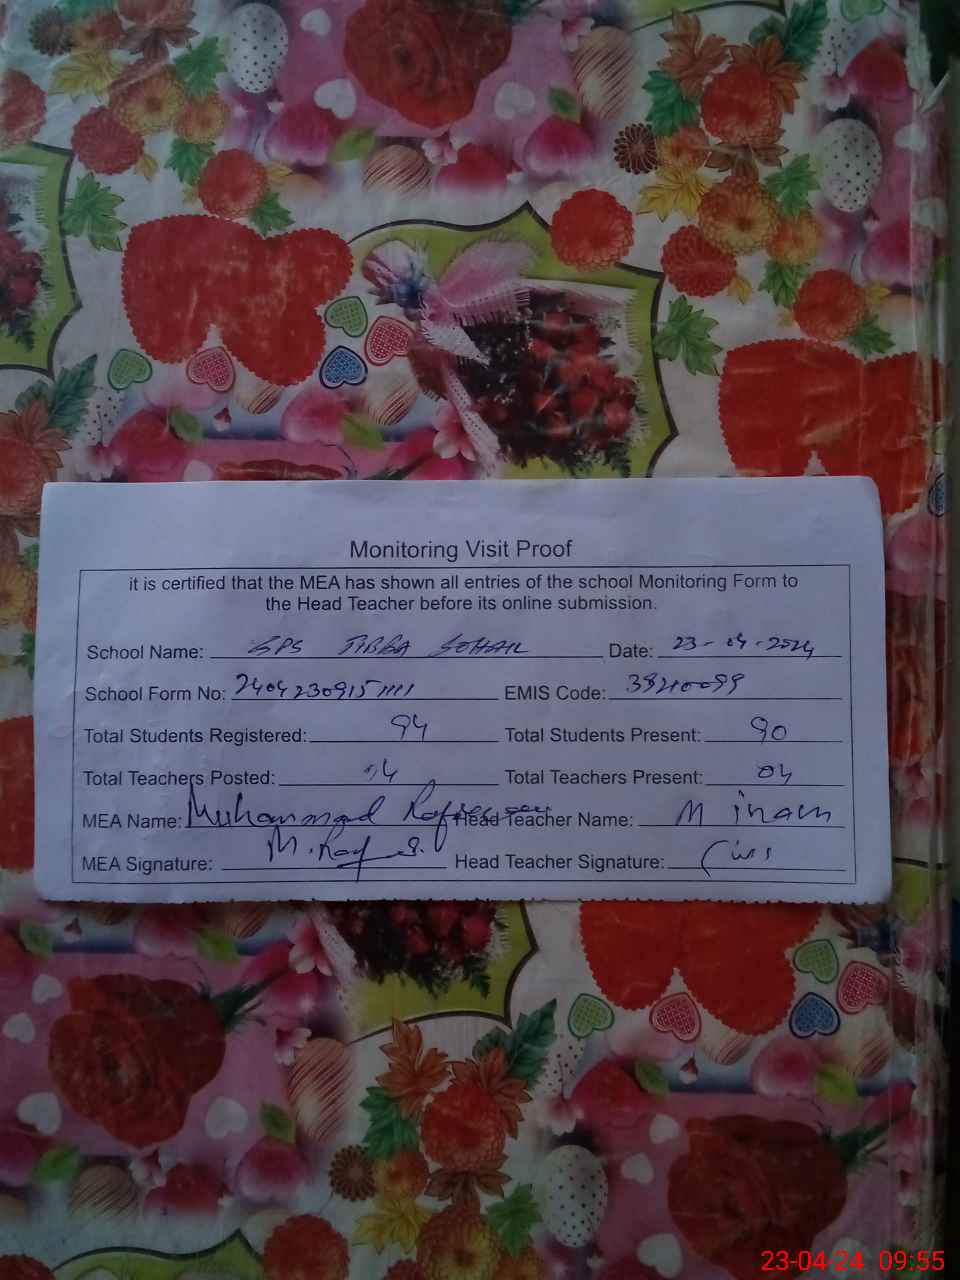 Monitoring Visit Proof
it is certified that the MEA has shown all entries of the school Monitoring Form to
the Head Teacher before its online submission.
School Name: GPS TIBBA SOHAIL Date: 23-04-2024
School Form No: 2404230915 EMIS Code: 38210099
Total Students Registered: 94 Total Students Present: 90
Total Teachers Posted: 04 Total Teachers Present: 04
MEA Name: Muhammad Head Teacher Name: M inam
MEA Signature: Head Teacher Signature:
23-04-24 09:55